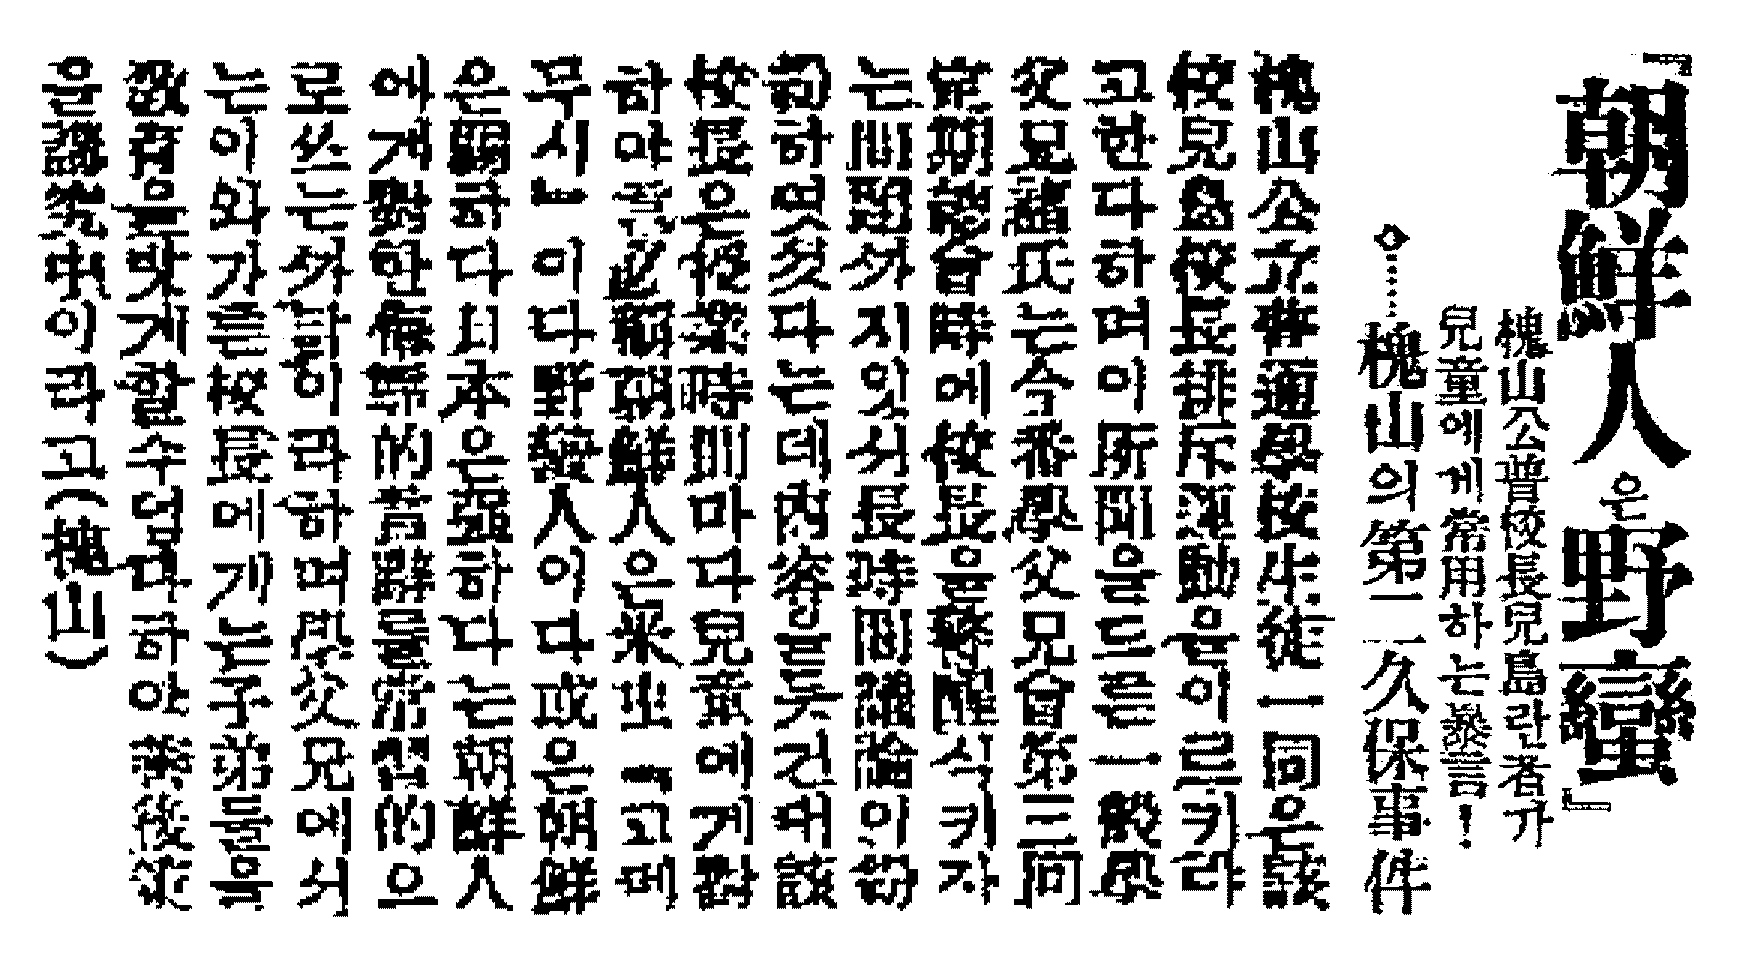 『朝鮮人은野蠻』
槐山公普校長兒島란者가
兒童에게常用하는暴言!
◇……槐山의第二久保事件
槐山公立普通學校生徒一同은該
校兒島校長排斥運動을이르키랴
고한다하며이所聞을드른一般學
父兄諸氏는今番學父兄會第三回
定期總會時에校長을辭職식키자
는問題까지잇서長時間議論이紛
하엿섯다는데內容을듯건대該
校長은授業時間마다兒童에게對
하야 朝鮮人은米 고메
무시」이다野蠻人이다或은朝鮮
은弱하다日本은强하다는朝鮮人
에게對한侮辱的言辭를常習的으
로쓰는까닭이라하며學父兄에서
는이와가튼校長에게는子弟들의
敎育을맛게할수업다하야善後策
을講究中이라고(槐山)